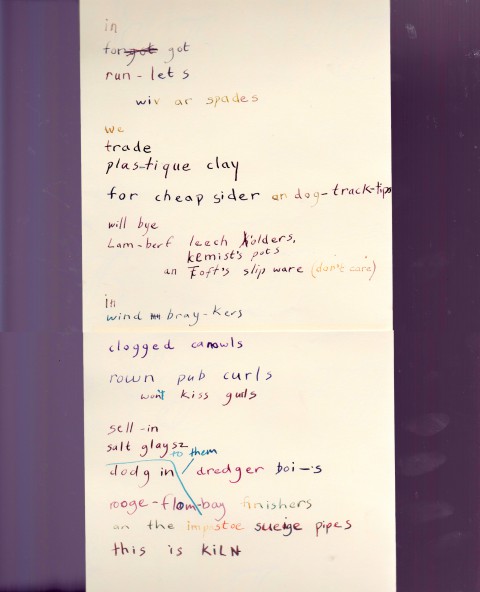 in
forgot got
run - lets
wiv ar spades
we
trade
plas-tique clay
for cheap sider an dog-track-tips
will bye
Lam-berf leech holders,
kemist's pots
an Toft's slip ware (don't care)
in
wind bray-kers
clogged canowls
rown pub curls
won't kiss gurls
sell-in
salt glaysz
to them
dodg in / dredger boi-s
rooge-flom-bay finishers
an the impostoe sueige pipes
this is KiLN